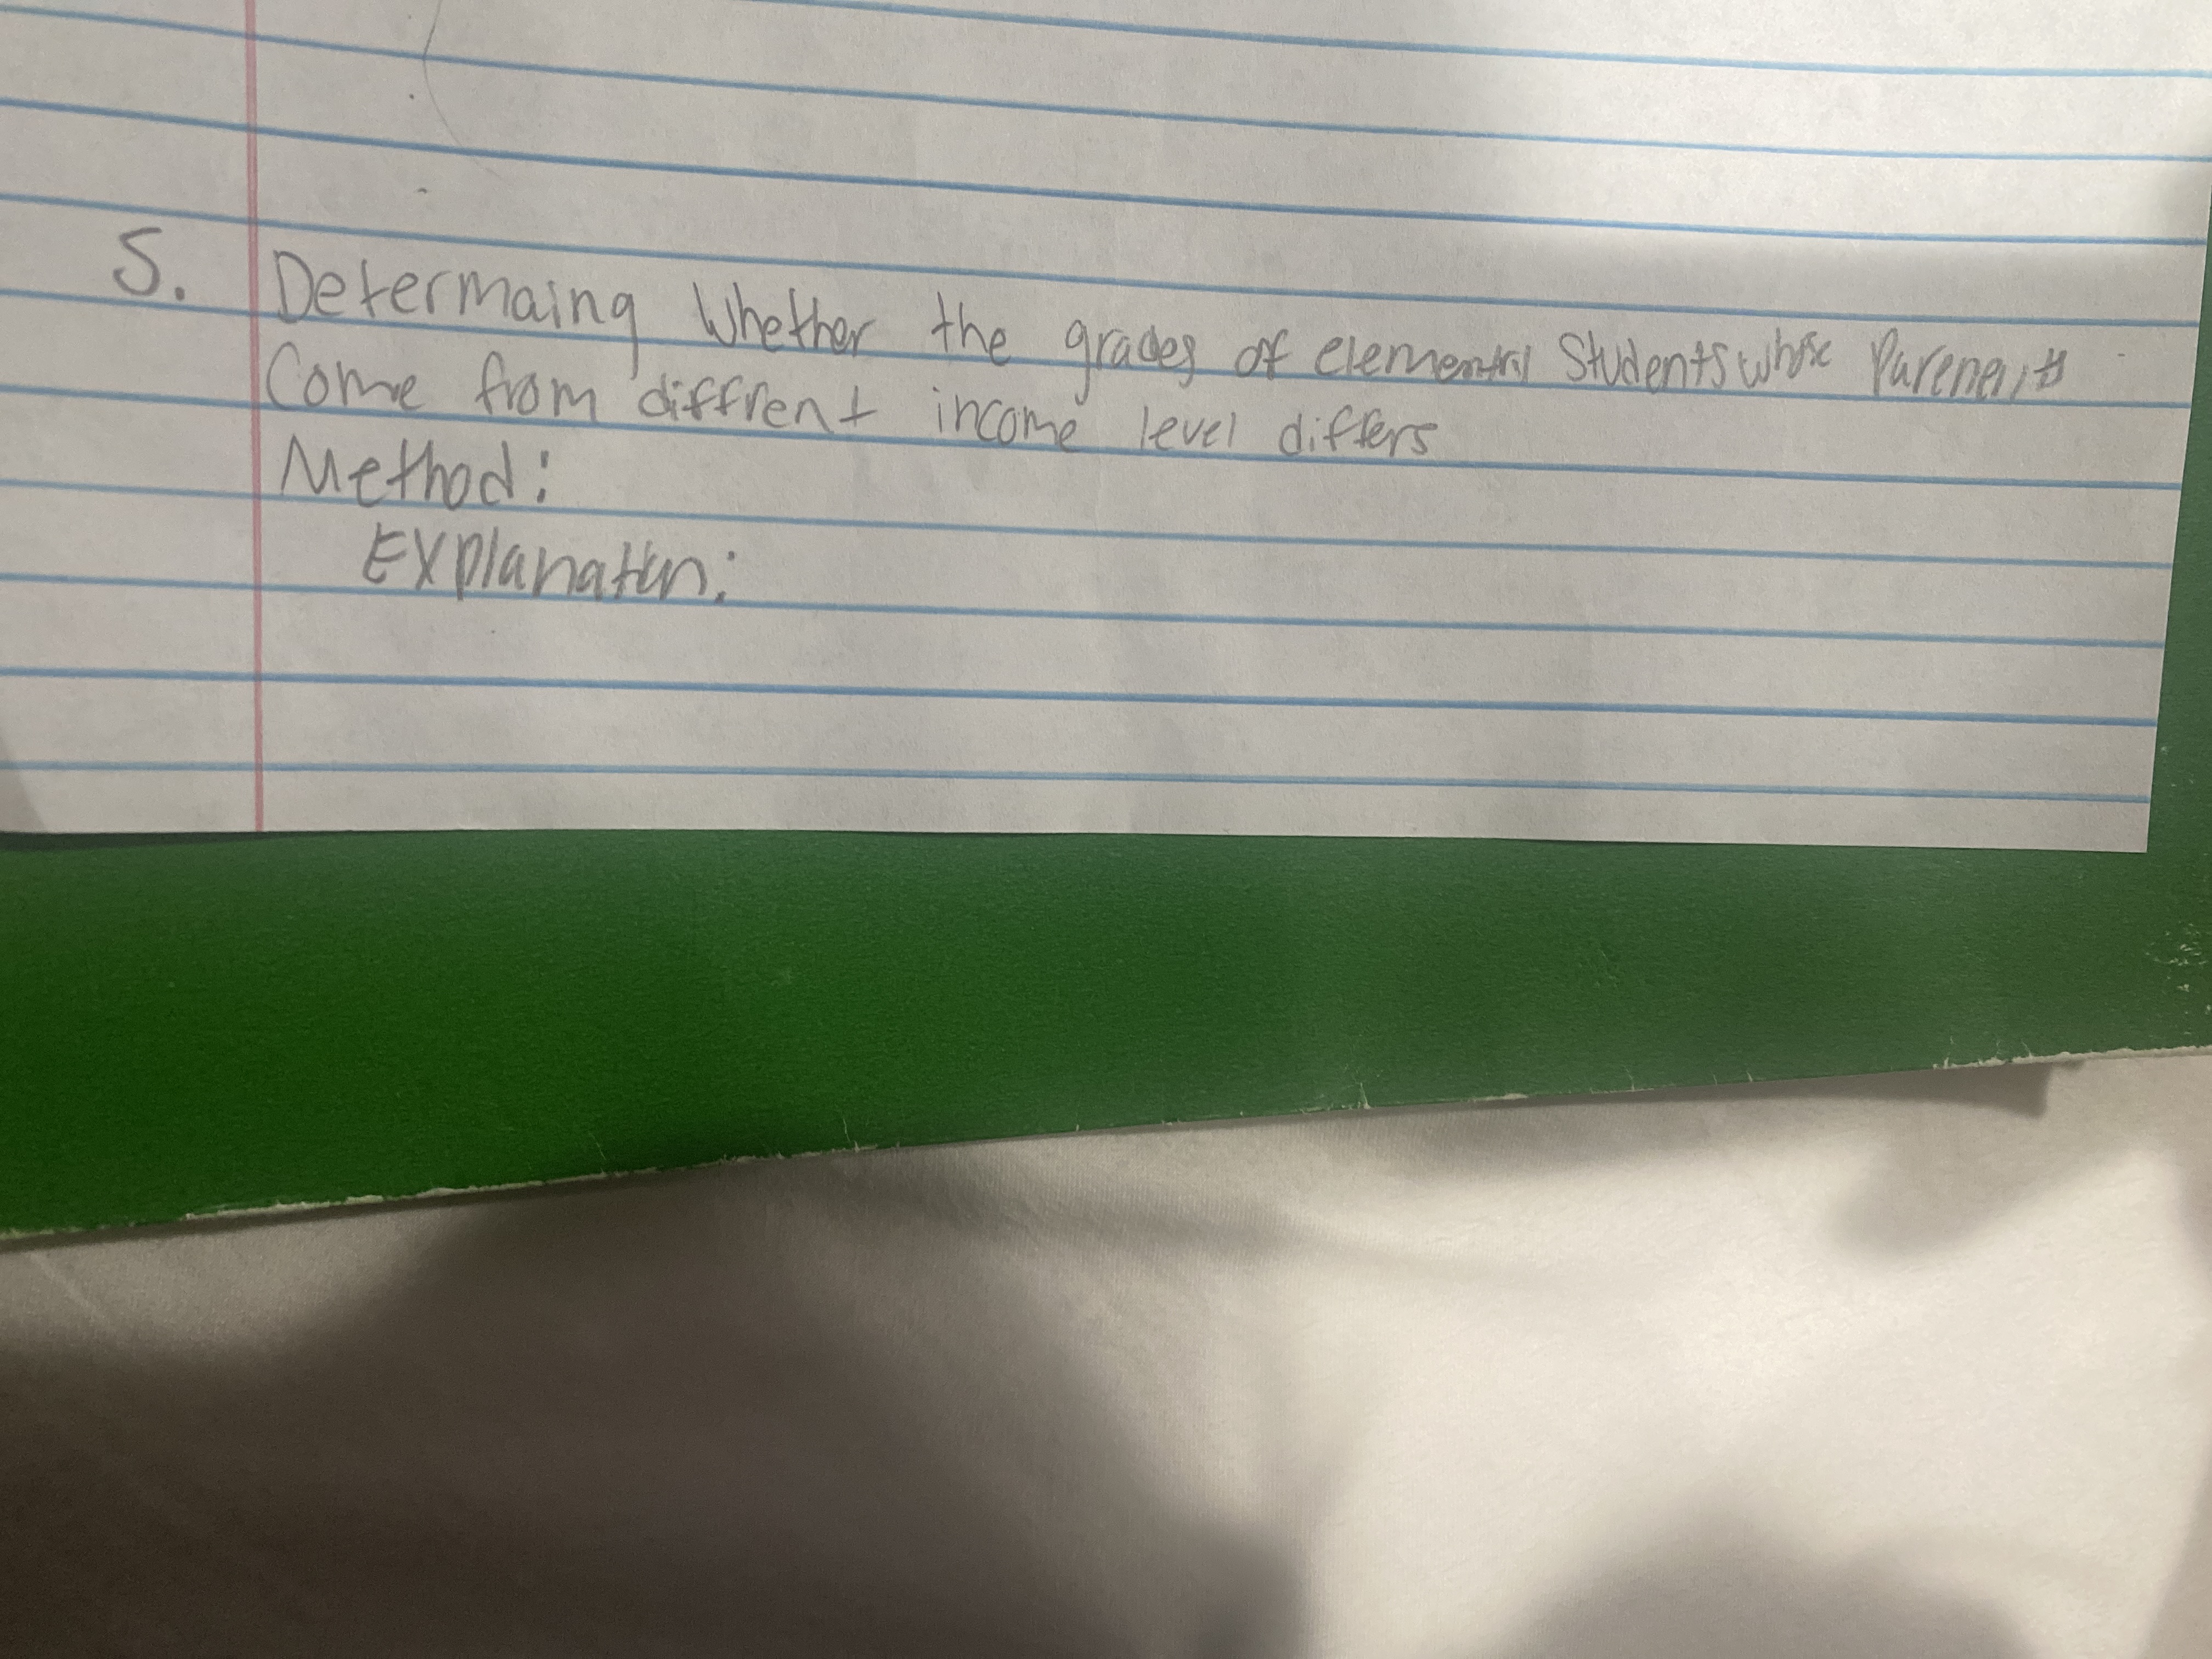 5. Determaing Whether the grades of elemental Students whose Parenents
Come from diffrent income level differs
Method:
Explanation: